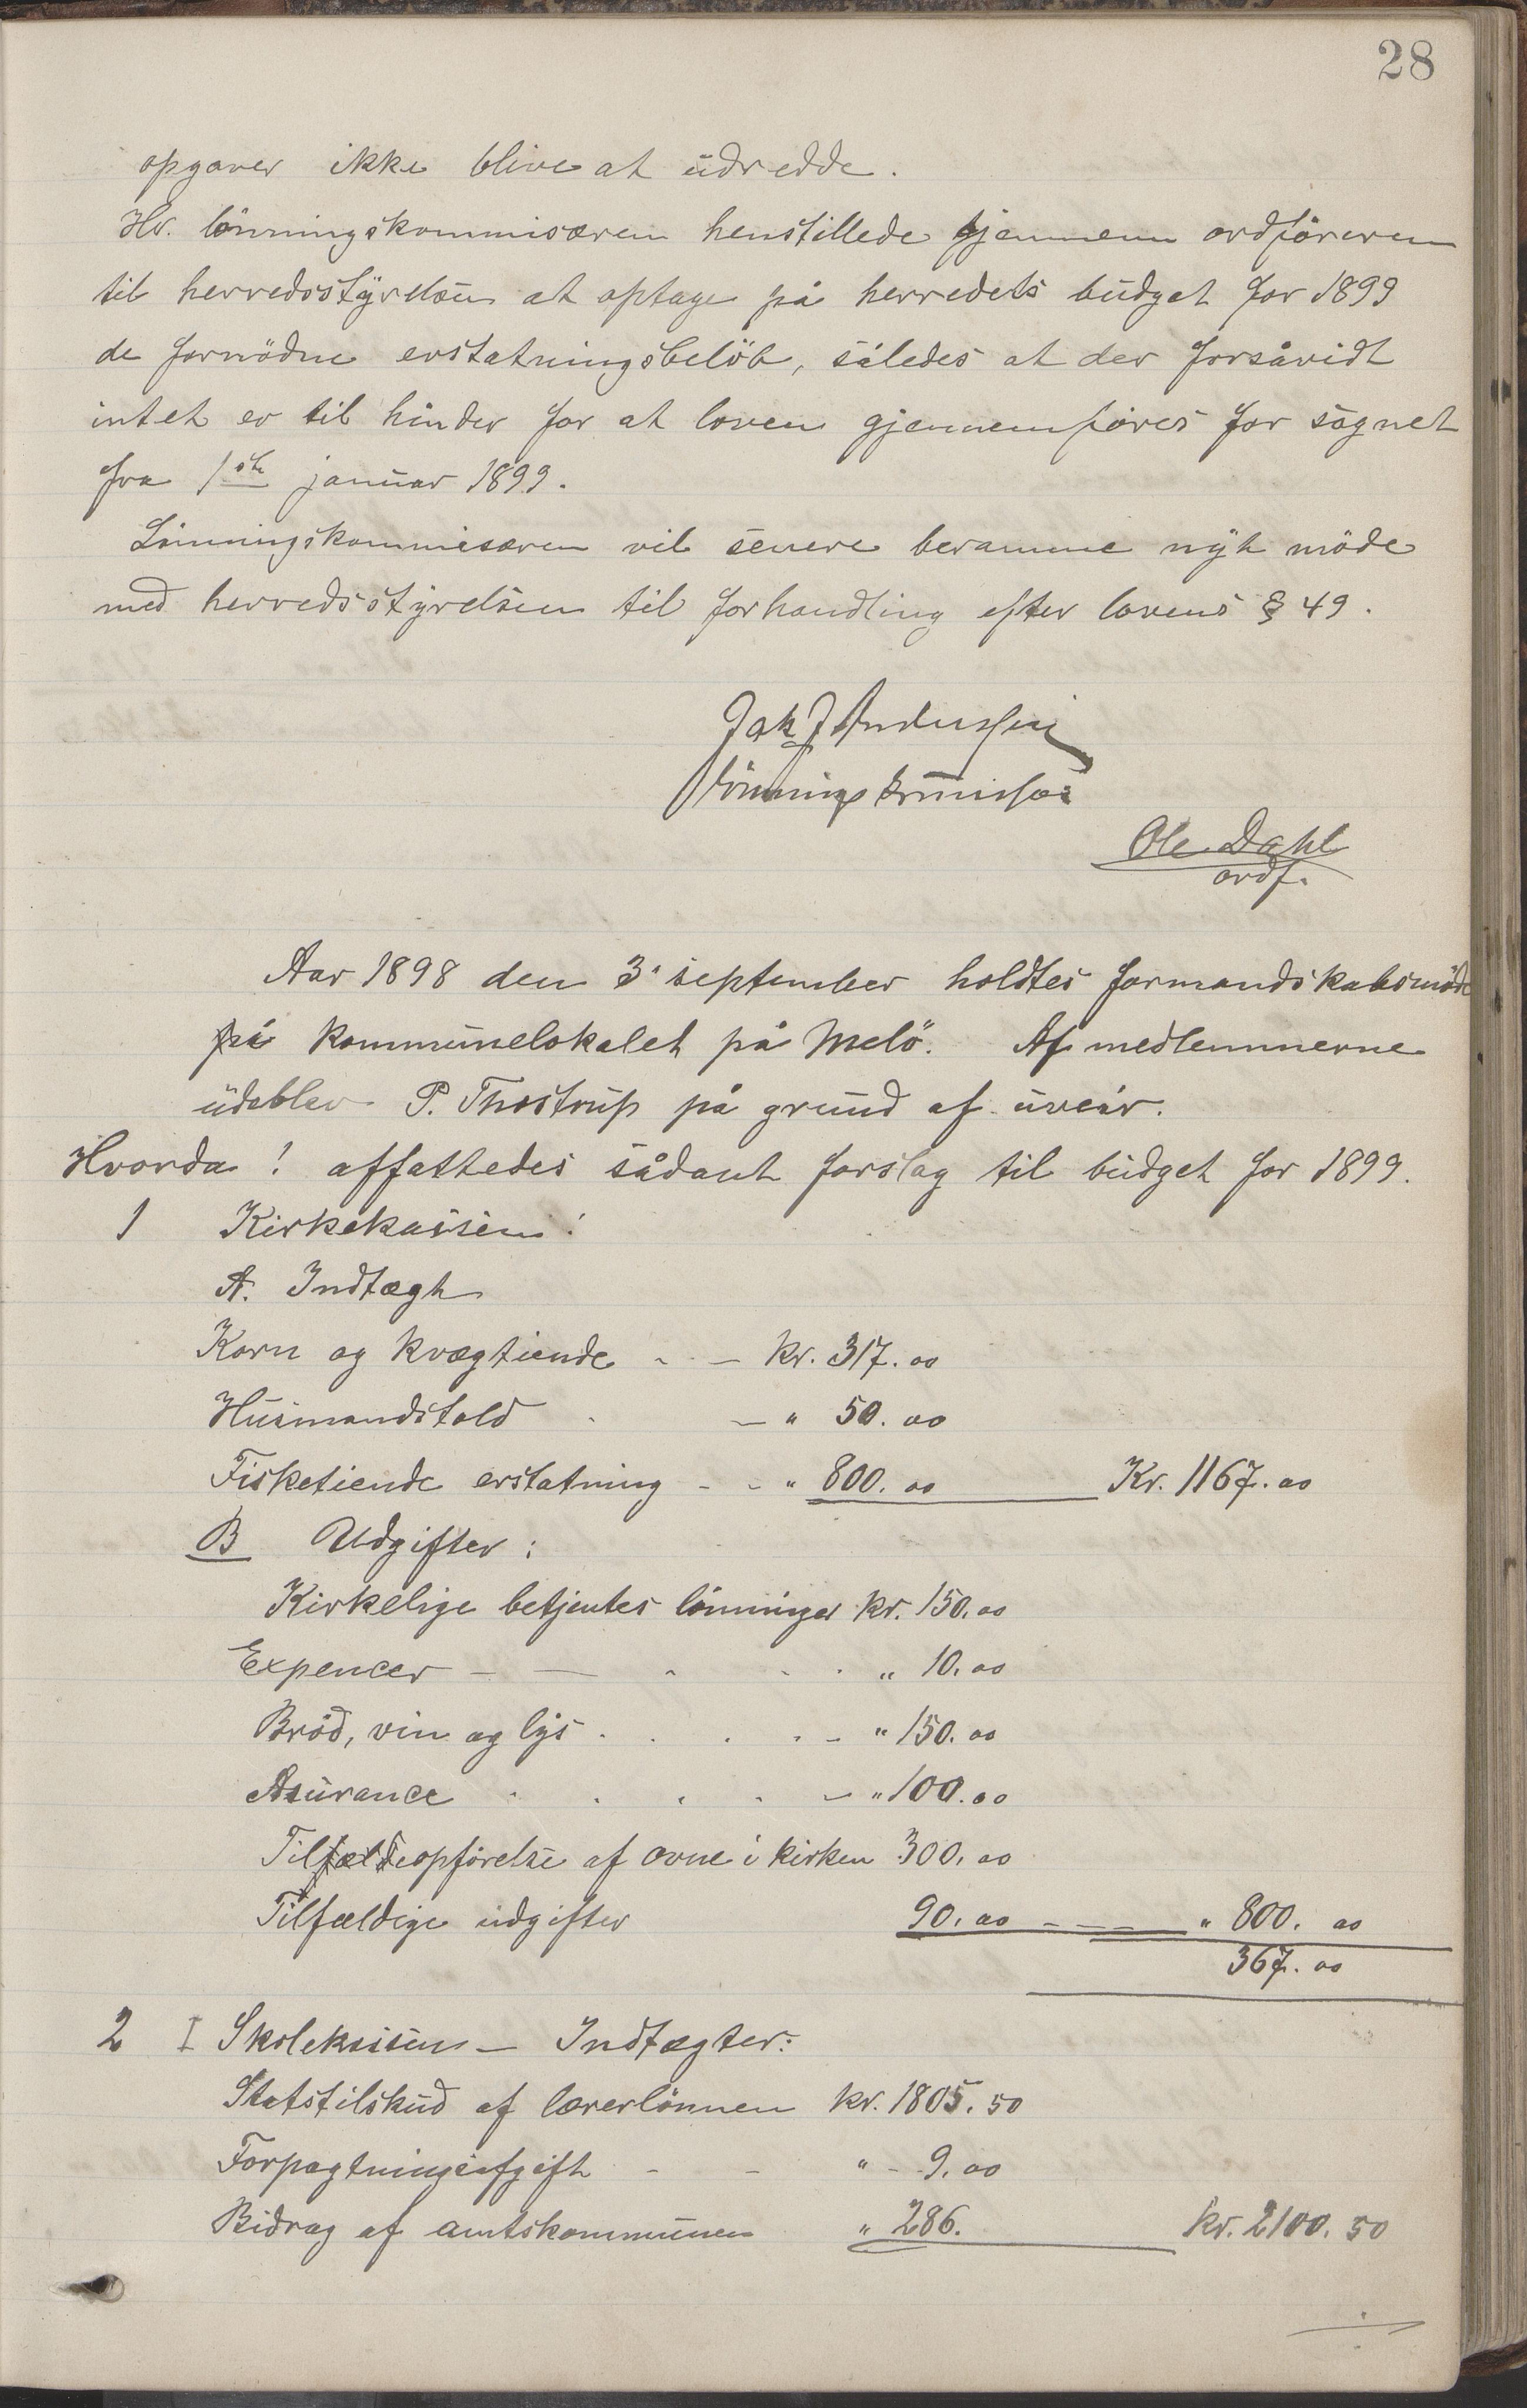 28
opgaver ikke blive at udredde.
Hr. lönningskommisæren henstillede gjennem ordföreren
til herredsstyrelsen at optage på herredets budget for 1899
de fornödne erstatningsbelöb, således at der forsåvidt
intet er til hinder for at loven gjennemföres for sognet
fra 1ste januar 1899.
Lönningskommisæren vil senere beramme nyt möde
med herredsstyrelsen til forhandling efter lovens § 49.
Jak J Anderssen
lönningskommissær
Ole Dahl
ordf.
Aar 1898 den 3. september holdtes formandskabsmöde
på kommunelokalet på Melö. Af medlemmerne
udeblev P. Thostrup på grund af uveir.
Hvorda! affattedes sådant forslag til budget for 1899.
1 Kirkekassen:
A. Indtægt
Korn og kvægtiende - - kr. 317.00
Husmandstold - - " 50.00
Fisketiende erstatning - - " 800.00 Kr. 1167.00
B Udgifter:
Kirkelige betjentes lönninger kr. 150.00
Expencer - - - - - " 10.00
Bröd, vin og lys - - - - - " 150.00
Asurance - - - - - " 100.00
Tilfælde opförelse af ovne i kirken 300.00
Tilfældige udgifter 90.00 - - - " 800.00
367.00
2 I Skolekassen - Indtægter:
Statstilskud af lærerlönnen kr. 1805.50
Forpagtningsafgift - - " - 9.00
Bidrag af amtskommunen " 286. kr. 2100.50